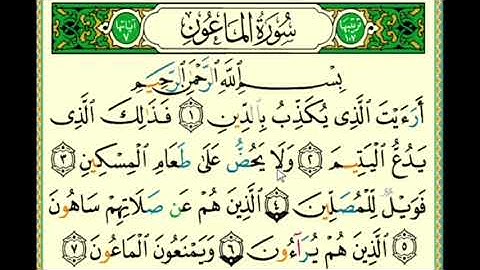 سُورَةُ المَاعُونِ
ترتيبها ١٠٧
آياتها ٧
بِسْمِ اللَّهِ الرَّحْمَٰنِ الرَّحِيمِ
أَرَءَيْتَ الَّذِى يُكَذِّبُ بِالدِّينِ ١ فَذَٰلِكَ الَّذِى
يَدُعُّ الْيَتِيمَ ٢ وَلَا يَحُضُّ عَلَىٰ طَعَامِ الْمِسْكِينِ ٣
فَوَيْلٌ لِّلْمُصَلِّينَ ٤ الَّذِينَ هُمْ عَن صَلَاتِهِمْ سَاهُونَ
٥ الَّذِينَ هُمْ يُرَآءُونَ ٦ وَيَمْنَعُونَ الْمَاعُونَ ٧